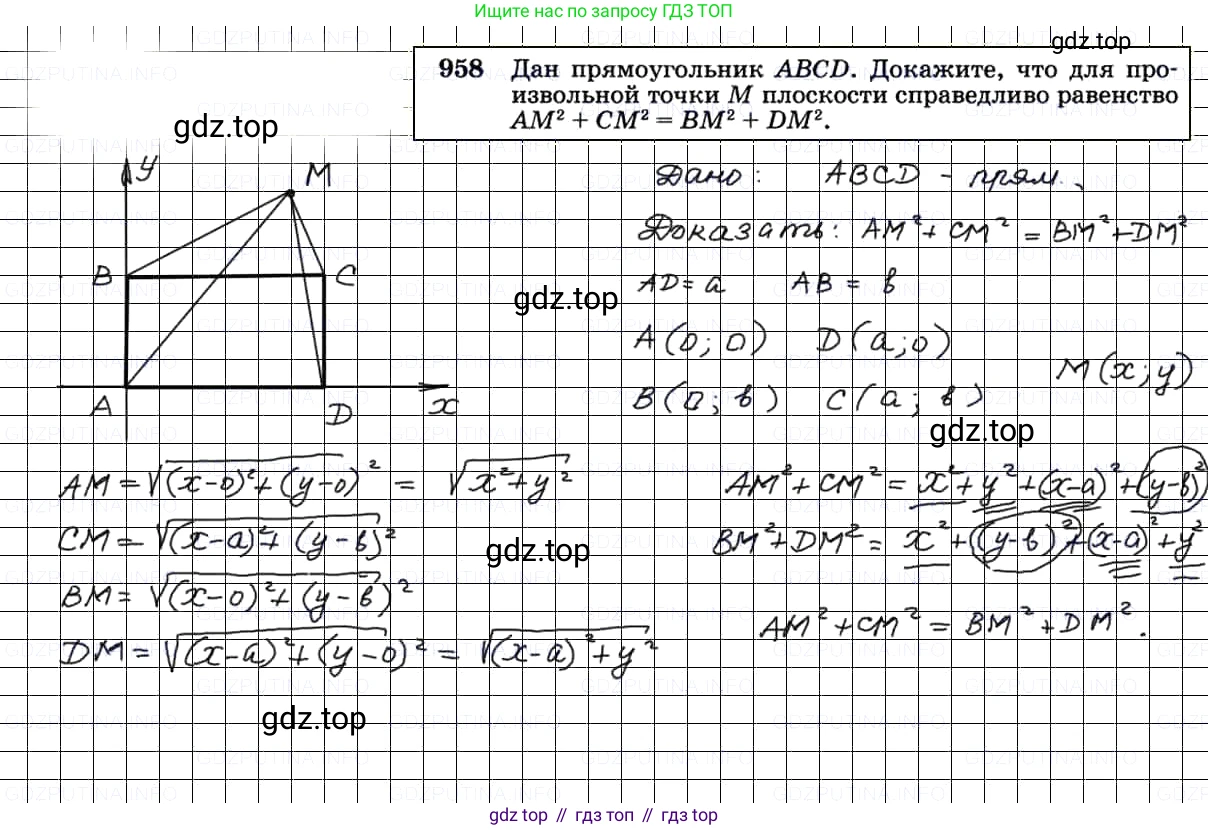 Ищите нас по запросу ГДЗ ТОП
gdz.top
958 Дан прямоугольник ABCD. Докажите, что для про-
извольной точки M плоскости справедливо равенство
AM² + CM² = BM² + DM².
gdz.top
y
M
B
C
A
D
x
Дано: ABCD - прям.
Доказать: AM² + CM² = BM² + DM²
AD = a AB = b
gdz.top
A(0; 0) D(a; 0)
M(x; y)
B(0; b) C(a; b)
gdz.top
AM = √(x-0)² + (y-0)² = √x² + y²
CM = √(x-a)² + (y-b)²
gdz.top
BM = √(x-0)² + (y-b)²
DM = √(x-a)² + (y-0)² = √(x-a)² + y²
AM² + CM² = x² + y² + (x-a)² + (y-b)²
BM² + DM² = x² + (y-b)² + (x-a)² + y²
AM² + CM² = BM² + DM².
gdz.top
gdz top // гдз топ // gdz top
GDZPUTINA.INFO